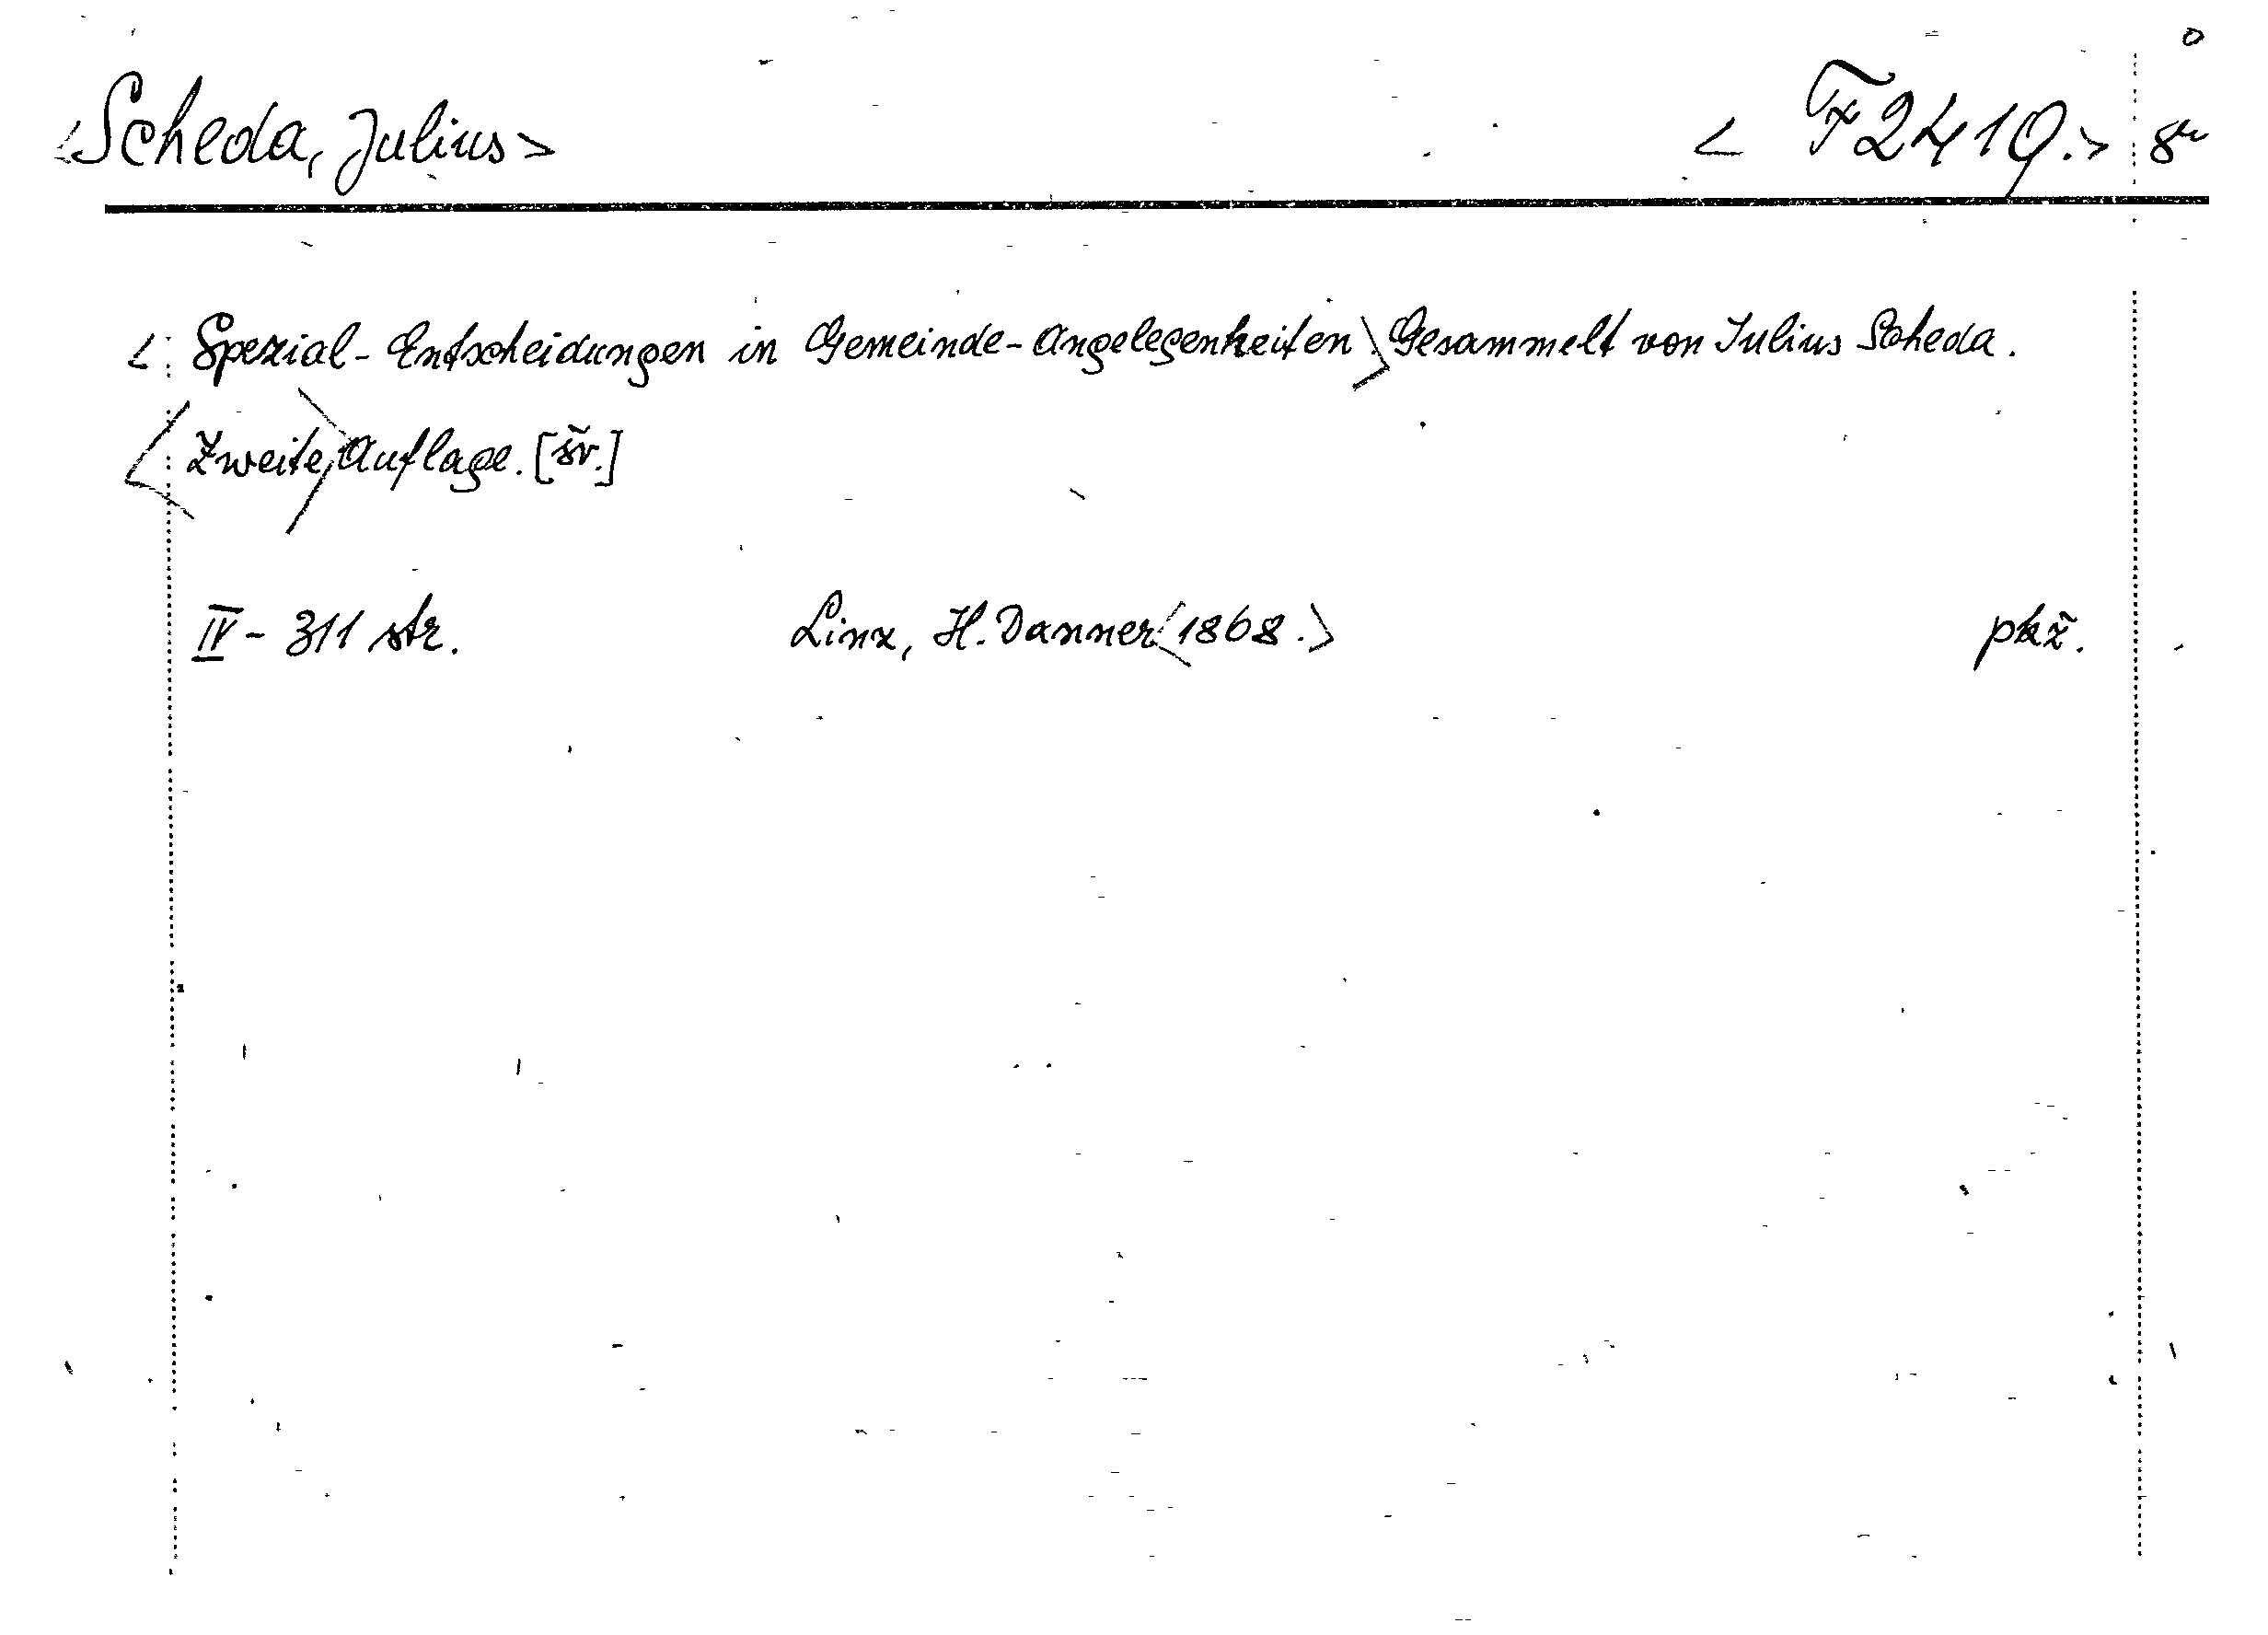 <Scheda, Julius> <F 2419.> 8°
<Spezial-Entscheidungen in Gemeinde-Angelegenheiten.> Gesammelt von Julius Scheda.
<Zweite> Auflage. [šv.]
IV - 311 str. Linz, H. Danner <1868.> pkž.